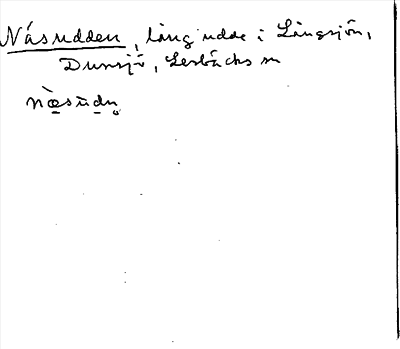 Näsudden, lång udde i Långsjön,
Dunsjö, Lerbäcks sn
næ̀sudn̥